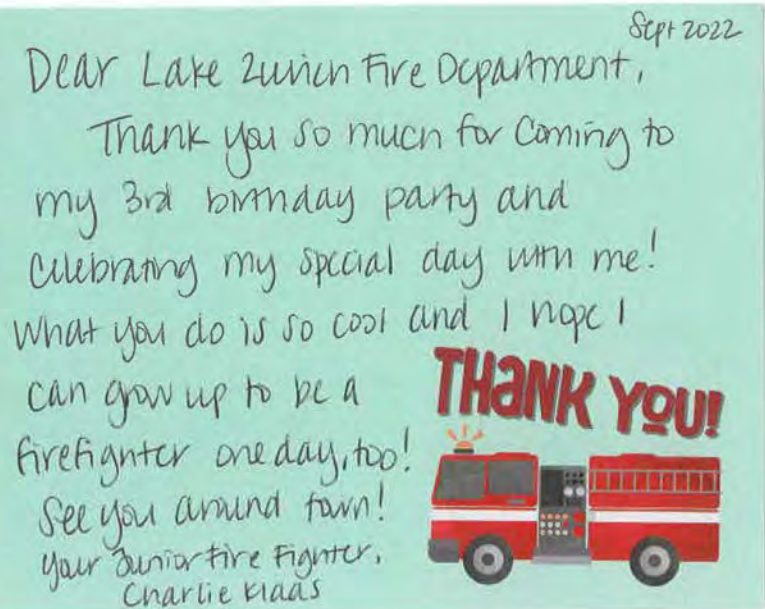 Sept 2022
Dear Lake Zurich Fire Department,
Thank you so much for coming to
my 3rd birthday party and
celebrating my special day with me!
What you do is so cool and I hope I
can grow up to be a
firefighter one day, too!
See you around town!
Your Junior Fire Fighter,
Charlie Klaas
THANK YOU!